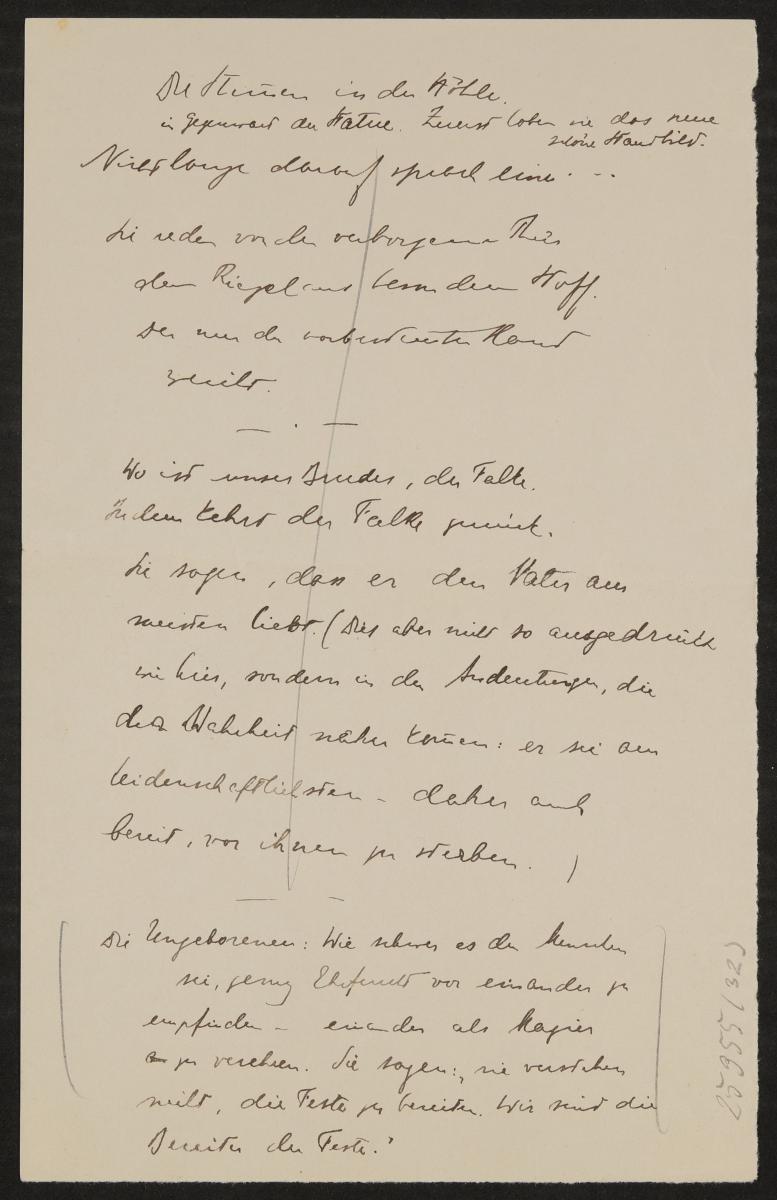 Die Stimmen in der Höhle.
in Gegenwart der Statue. Zuerst loben sie das neue
schöne Standbild.
Nicht lange darauf sprach eine . . .
Sie reden von der verborgenen Thür
dem Riegel aus dem Stoff.
Der nur der vorbestimmten Hand
weicht.
— . —
Wo ist unser Bruder, der Falke.
Indem kehrt der Falke zurück.
Sie sagen, dass er den Vater am
meisten liebt. (Dies aber nicht so ausgedrückt
wie hier, sondern in den Andeutungen, die
der Wahrheit näher kommen: er sei am
leidenschaftlichsten – daher auch
bereit, vor ihnen zu sterben. )
— —
Die Ungeborenen: Wie schwer es den Menschen
sei, genug Ehrfurcht vor einander zu
empfinden – einander als Magier
zu verehren. Sie sagen: „sie verstehen
nicht, die Feste zu bereiten. Wir sind die
Bereiter der Feste."
25955 (32)